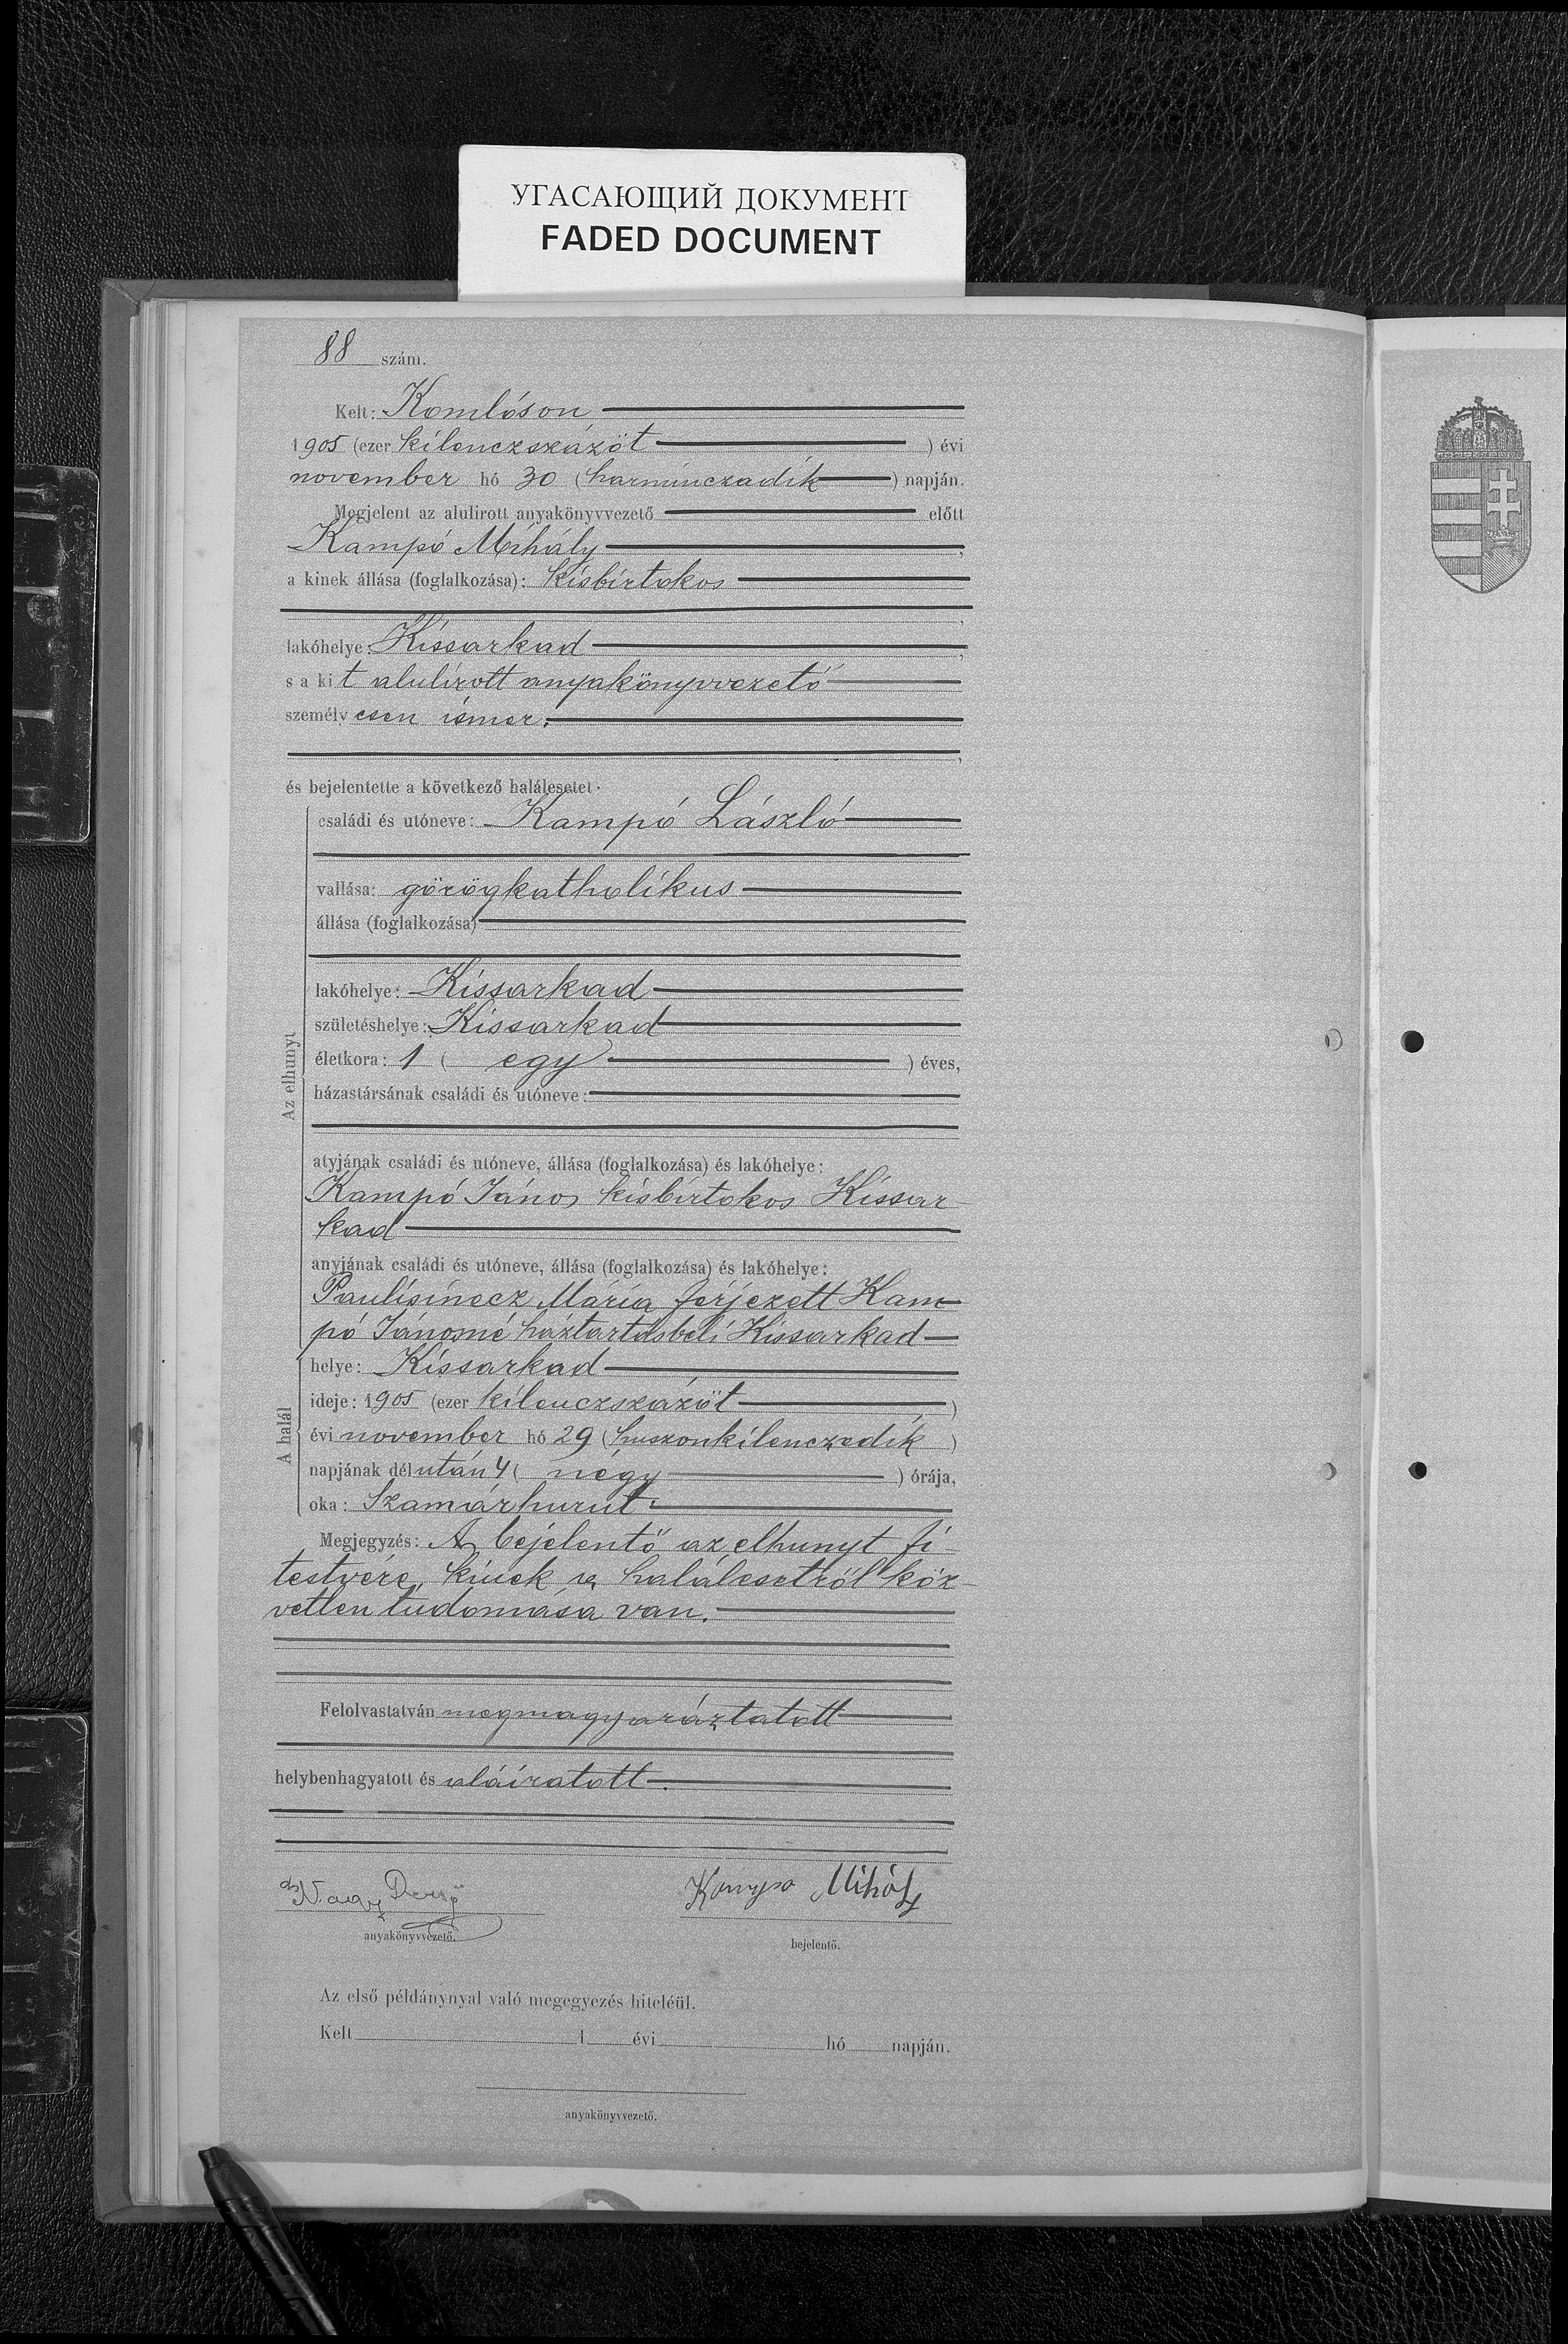 УГАСАЮЩИЙ ДОКУМЕНТ
FADED DOCUMENT
88 szám.
Kelt: Komlóson
1905 (ezer kilenczszázöt ) évi
november hó 30 (harminczadik ) napján.
Megjelent az alulirott anyakönyvvezető előtt
Kampó Mihály ,
a kinek állása (foglalkozása): kisbirtokos
,
lakóhelye: Kissarkad ,
s a kit alulirott anyakönyvvezető
személyesen ismer.
,
és bejelentette a következő halálesetet:
Az elhunyt
családi és utóneve: Kampó László
vallása: görögkatholikus
állása (foglalkozása)
lakóhelye: Kissarkad
születéshelye: Kissarkad
életkora: 1 ( egy ) éves,
házastársának családi és utóneve:
atyjának családi és utóneve, állása (foglalkozása) és lakóhelye:
Kampó János kisbirtokos Kissar-
kad
anyjának családi és utóneve, állása (foglalkozása) és lakóhelye:
Paulisinecz Mária férjezett Kam-
pó Jánosné háztartásbeli Kissarkad
A halál
helye: Kissarkad
ideje: 1905 (ezer kilenczszázöt )
évi november hó 29 (huszonkilenczedik )
napjának délután 4 ( négy ) órája,
oka: Szamárhurut.
Megjegyzés: A bejelentő az elhunyt fi-
testvére, kinek a halálesetről köz-
vetlen tudomása van.
Felolvastatván megmagyaráztatott
helybenhagyatott és aláiratott.
Nagy Dezső
anyakönyvvezető.
Kampo Mihály
bejelentő.
Az első példánynyal való megegyezés hiteléül.
Kelt 1 évi hó napján.
anyakönyvvezető.